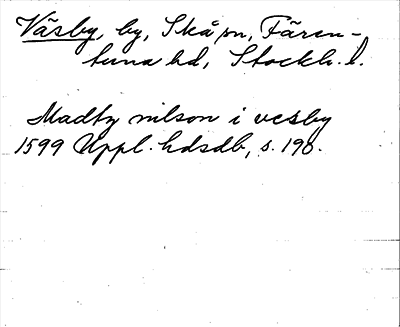 Väsby, by, Skå sn, Fären-
tuna hd, Stockh. l.
Madtz nilson i vesby
1599 Uppl. hdsdb, s. 190.